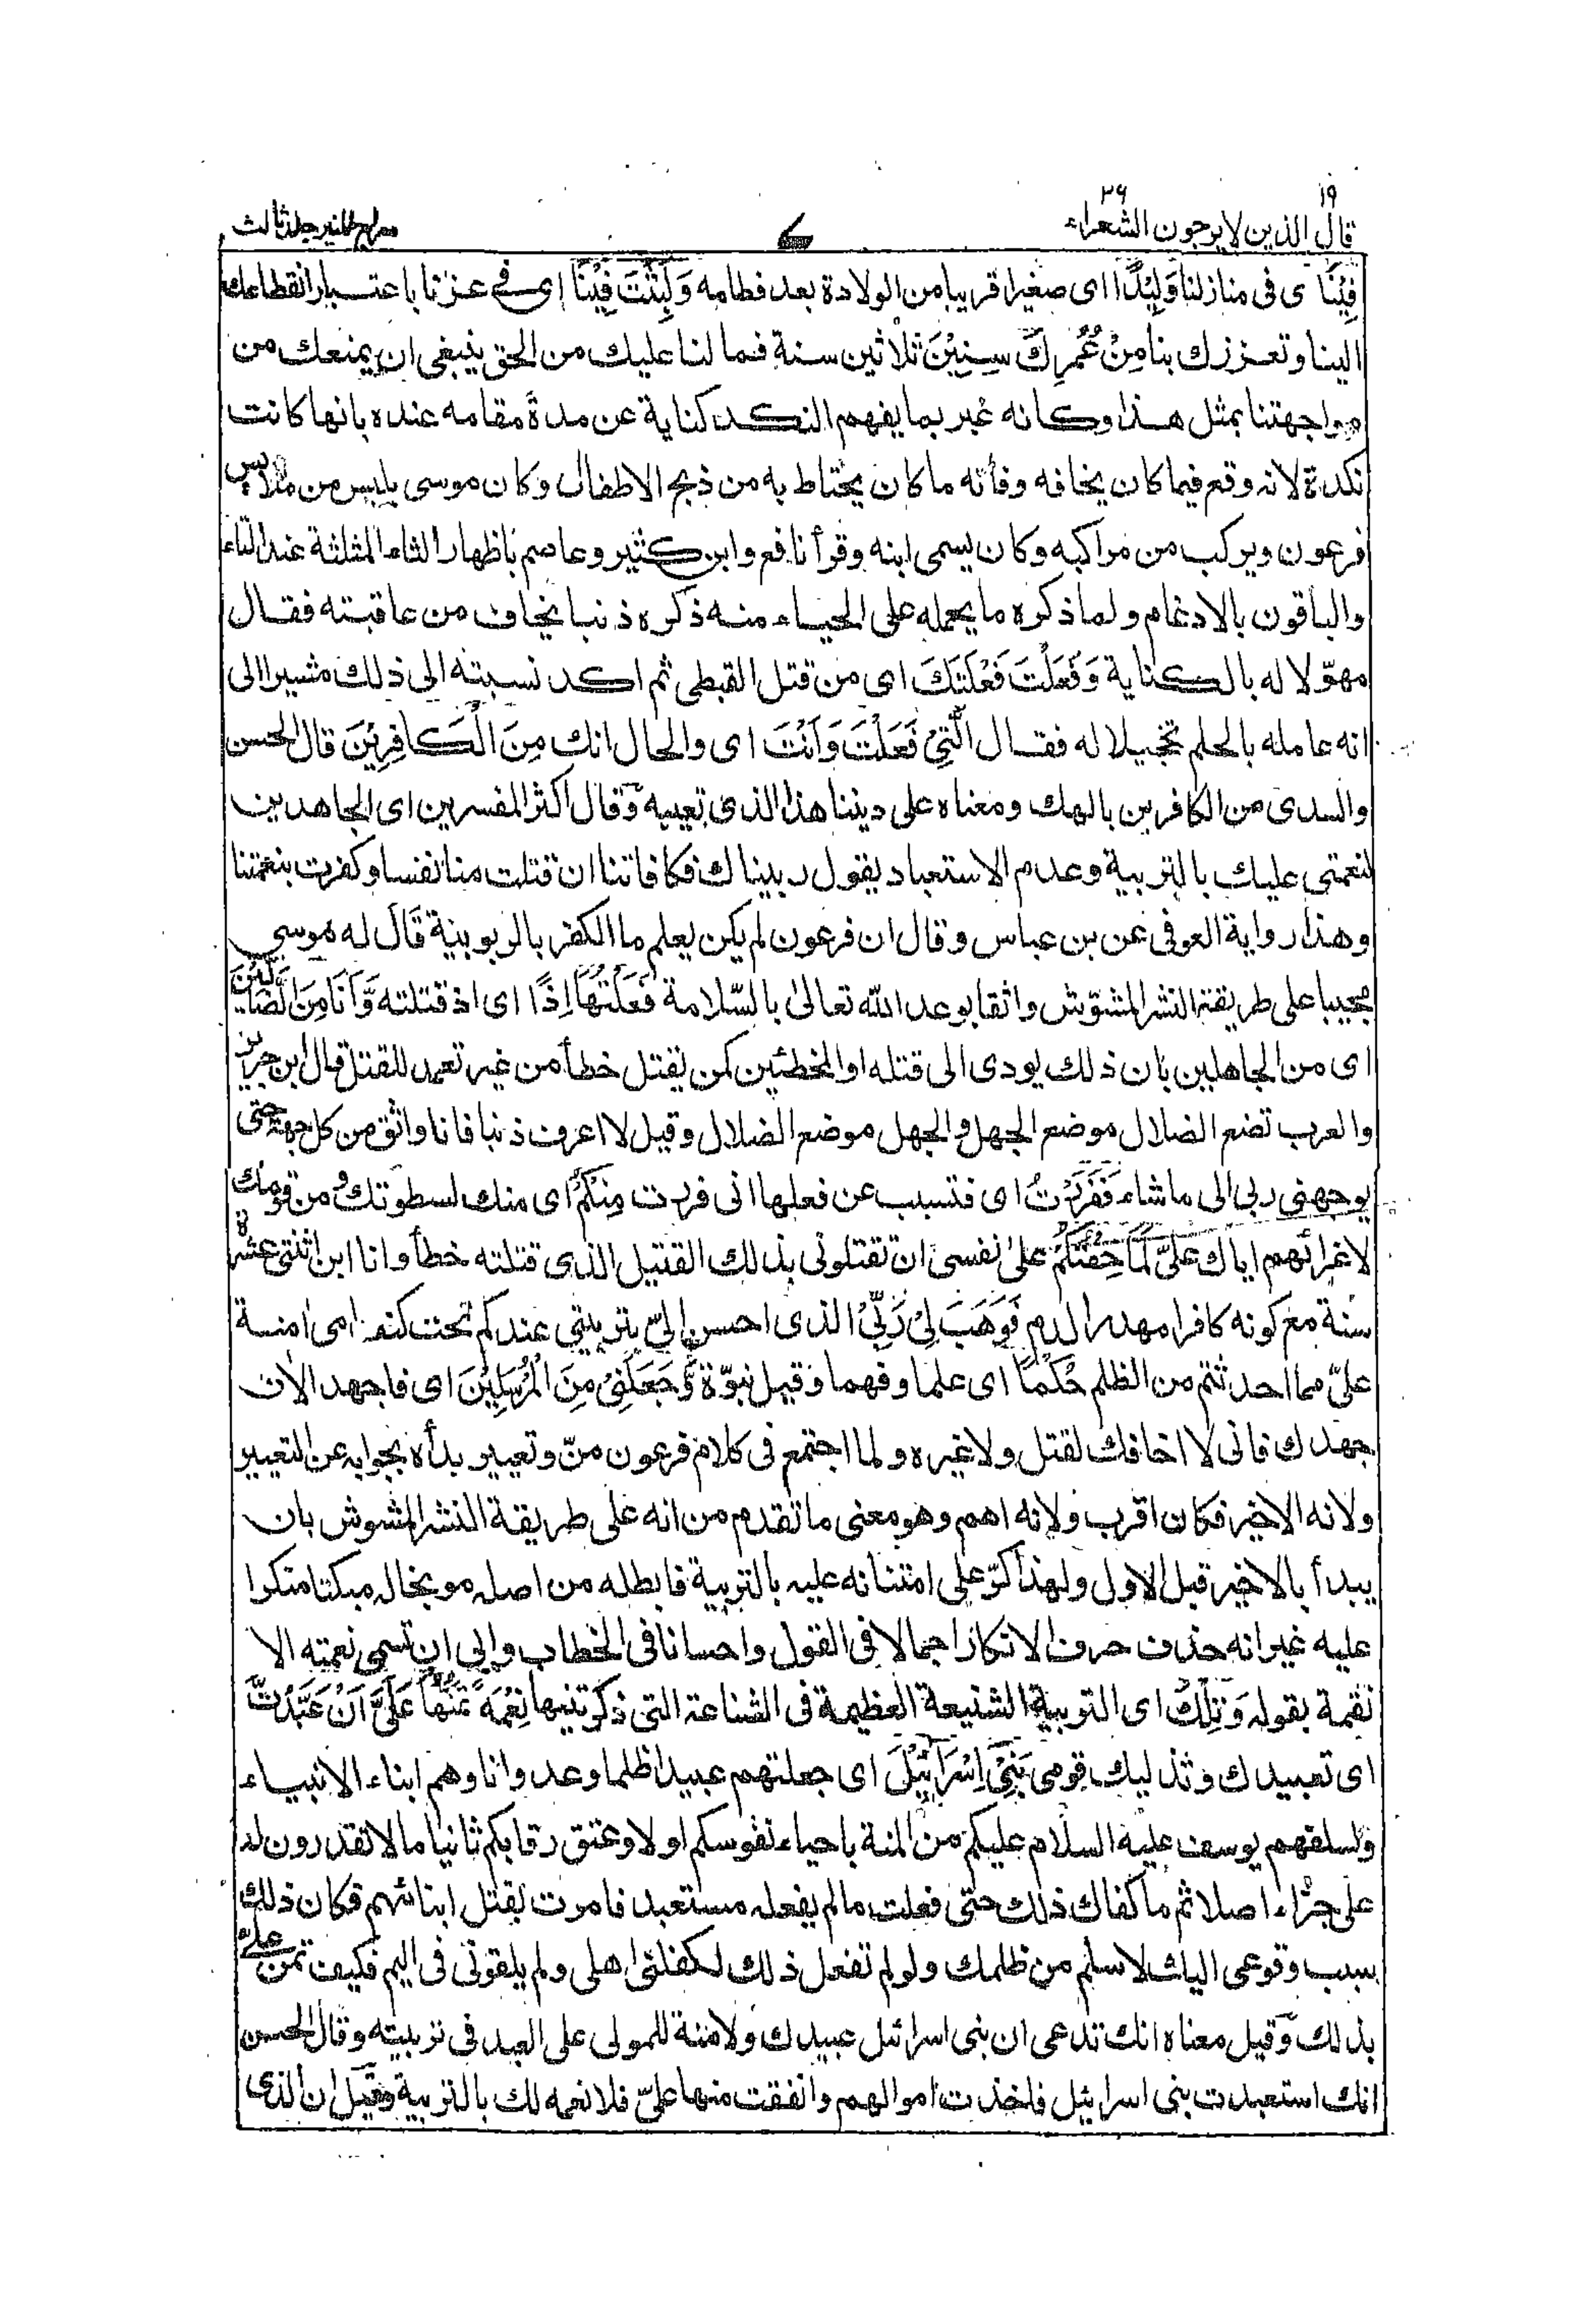 ١٩ ٢٦
قال الذين لا يرجون الشعراء ٧ سراج المنير جلد ثالث
فِيْنَا ى فى منازلنا وَلِيْدًا اى صغيرا قريبا من الولادة بعد فطامه وَلَبِثْتَ فِيْنَا اى فى عزنا باعتبار انقطاعك
الينا وتعززك بنا مِنْ عُمُرِكَ سِنِيْنَ ثلاثين سنة فما لنا عليك من الحق ينبغى ان يمنعك من
مواجهتنا بمثل هذا وكانه عبر بما يفهم النكد كناية عن مدة مقامه عنده بانها كانت
نكدة لانه وقع فيما كان يخافه وفأته ما كان يحتاط به من ذبح الاطفال وكان موسى يلبس من ملابس
فرعون ويركب من مراكبه وكان يسمى ابنه وقرأ نافع وابن كثير وعاصم باظهار الثاء المثلثة عند التاء
والباقون بالادغام ولما ذكره ما يحمله على الحياء منه ذكره ذنبا يخاف من عاقبته فقال
مهوّلا له بالكناية وَفَعَلْتَ فَعْلَتَكَ اى من قتل القبطى ثم اكد نسبته الى ذلك مشيرا الى
انه عامله بالحلم تخجيلا له فقال الَّتِيْ فَعَلْتَ وَاَنْتَ اى والحال انك مِنَ الْكَافِرِيْنَ قال الحسن
والسدى من الكافرين بالهك ومعناه على ديننا هذا الذى تعيبه وقال اكثر المفسرين اى الجاحدين
لنعمتى عليك بالتربية وعدم الاستعباد يقول ربيناك فكافاتنا ان قتلت منا نفسا وكفرت بنعمتنا
وهذا رواية العوفى عن بن عباس وقال ان فرعون لم يكن يعلم ما الكفر بالربوبية قَالَ له موسى
مجيبا على طريقة النشر المشوّش واثقا بوعد الله تعالى بالسّلامة فَعَلْتُهَا اِذًا اى اذ قتلته وَّاَنَا مِنَ الضَّالِّيْنَ
اى من الجاهلين بان ذلك يودى الى قتله او المخطئين كمن يقتل خطأ من غير تعمد للقتل قال ابن جرير
والعرب تضع الضلال موضع الجهل والجهل موضع الضلال وقيل لا اعرف ذنبا فانا واثق من كل جهة حتى
يوجهنى ربى الى ما شاء فَفَرَرْتُ اى فتسبب عن فعلها انى فررت مِنْكُمْ اى منك لسطوتك ومن قومك
لاغرائهم اياك علىّ لَمَّا خِفْتُكُمْ على نفسى ان تقتلونى بذلك القتيل الذى قتلته خطأ وانا ابن اثنتى عشرة
سنة مع كونه كافرا مهدر الدم فَوَهَبَ لِيْ رَبِّيْ الذى احسن الىّ بتربيتى عندكم تحت كنف امى امنة
علىّ مما احدثتم من الظلم حُكْمًا اى علما وفهما وقيل نبوّة وَّجَعَلَنِيْ مِنَ الْمُرْسَلِيْنَ اى فاجهد الان
جهدك فانى لا اخافك لقتل ولا غيره ولما اجتمع فى كلام فرعون منّ وتعيير بدأه بجوابه عن التعيير
ولانه الاخير فكان اقرب ولانه اهم وهو معنى ما تقدم من انه على طريقة النشر المشوش بان
يبدأ بالاخير قبل الاول ولهذا كرّ على امتنانه عليه بالتربية فابطله من اصله موبخا له مبكتا منكرا
عليه غير انه حذف حرف الانكار اجمالا فى القول واحسانا فى الخطاب وابى ان تسمى نعمته الا
نقمة بقوله وَتِلْكَ اى التربية الشنيعة العظيمة فى الشناعة التى ذكرتنيها نِعْمَةٌ تَمُنُّهَا عَلَيَّ اَنْ عَبَّدْتَّ
اى تعبيدك وتذليلك قومى بَنِيْ اِسْرَائِيْلَ اى جعلتهم عبيدا ظلما وعدوانا وهم ابناء الانبياء
ولسلفهم يوسف عليه السلام عليكم من المنة باحياء نفوسكم اولا وعتق رقابكم ثانيا ما لا تقدرون له
على جزاء اصلا ثم ما كفاك ذلك حتى فعلت ما لم يفعله مستعبد فامرت بقتل ابنائهم فكان ذلك
سبب وقوعى اليك لاسلم من ظلمك ولو لم تفعل ذلك لكفلنى اهلى ولم يلقونى فى اليم فكيف تمن علىّ
بذلك وقيل معناه انك تدعى ان بنى اسرائل عبيدك ولا منة للمولى على العبد فى تربيته وقال الحسن
انك استعبدت بنى اسرائيل فاخذت اموالهم وانفقت منها علىّ فلا نعمة لك بالتربية وقيل ان الذى